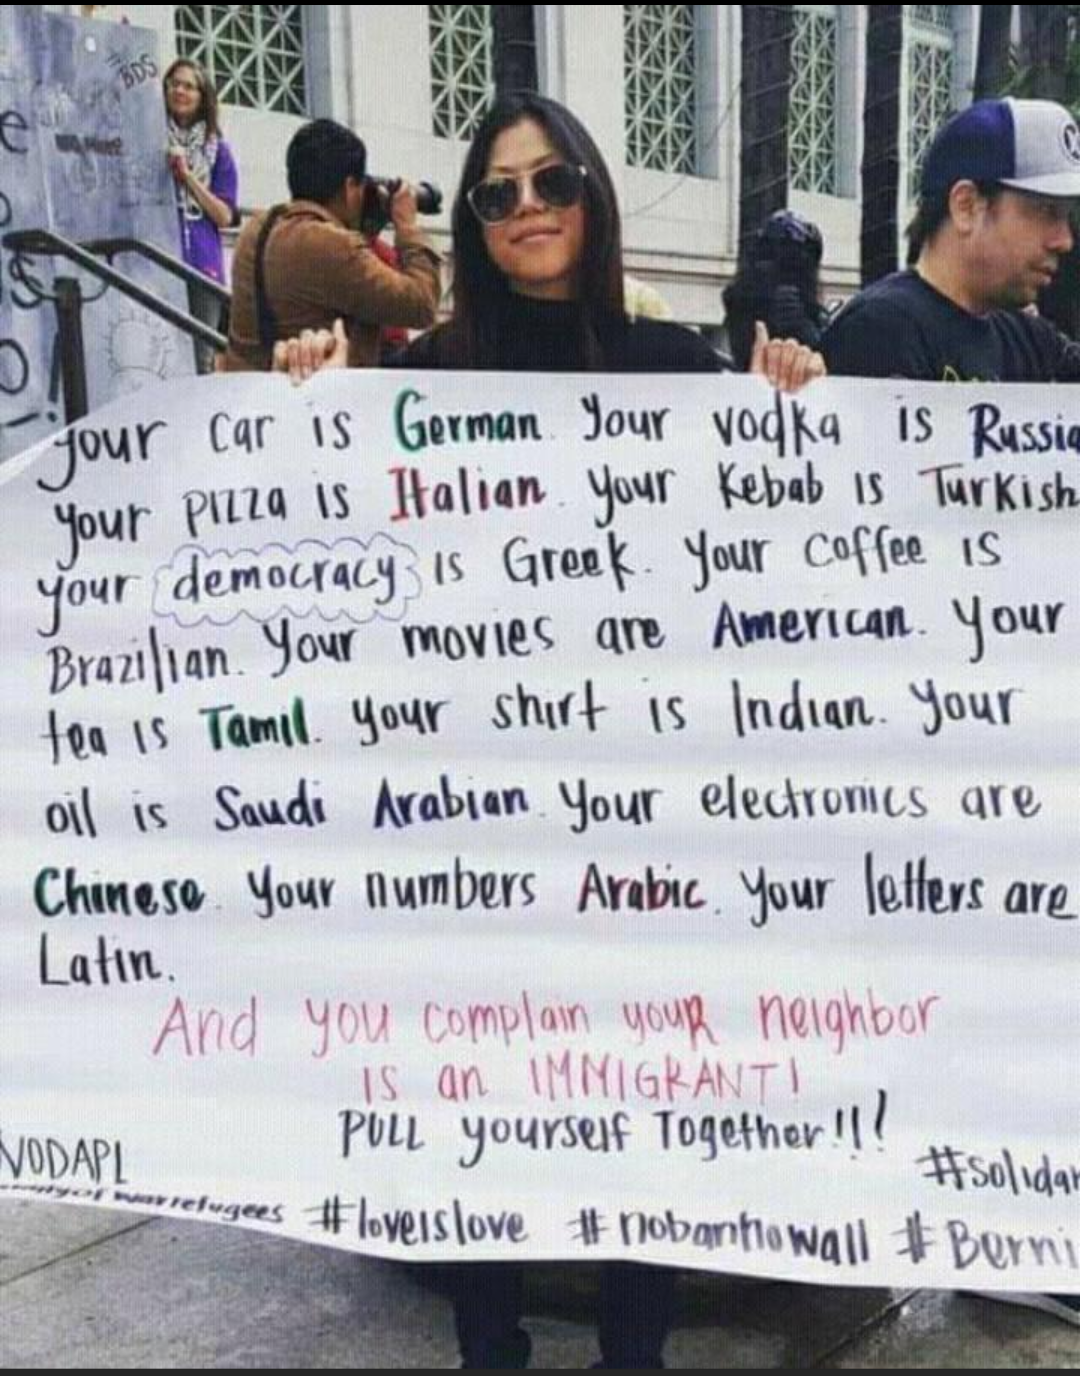 BDS
your car is German. Your vodka is Russia
your PIZZA is Italian. your Kebab is Turkish
your democracy is Greek. your coffee is
Brazilian. Your movies are American. your
tea is Tamil. your shirt is Indian. your
oil is Saudi Arabian. your electronics are
Chinese. your numbers Arabic. your letters are
Latin.
And you complain your neighbor
is an IMMIGRANT!
PULL yourself Together!!!
NODAPL
#solidar
of war refugees #loveislove #nobannowall #Berni